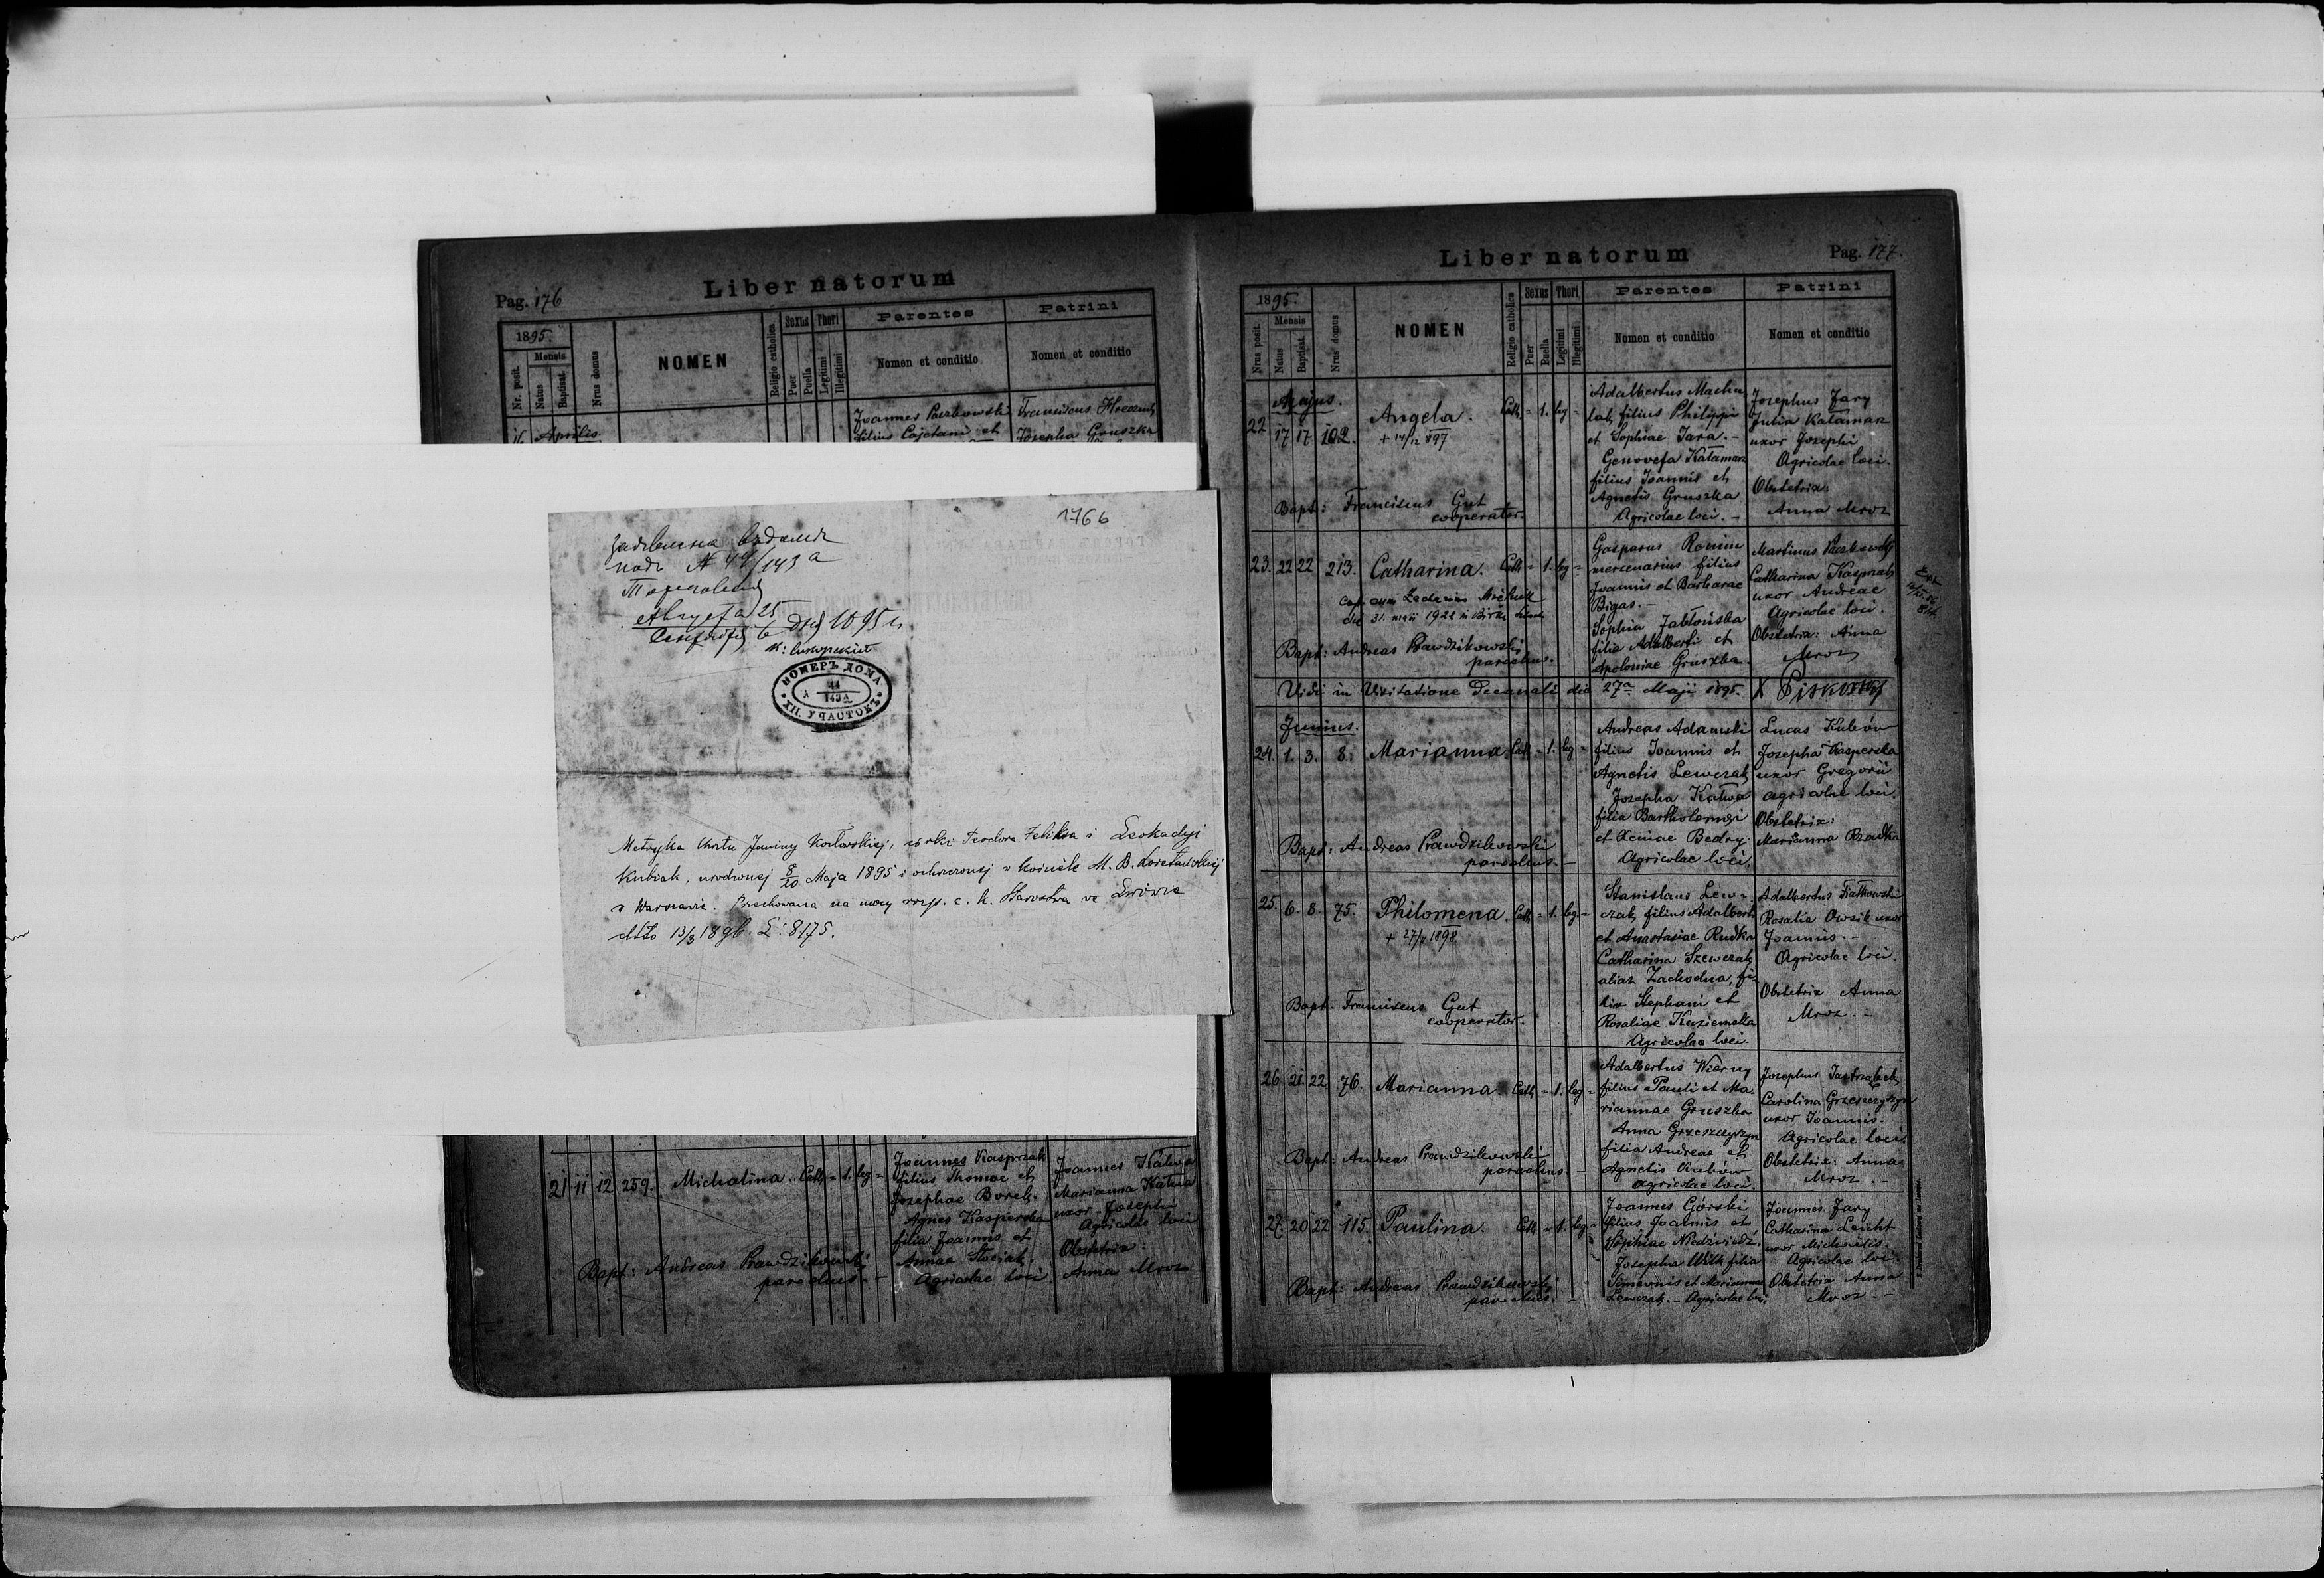 Pag. 176
Liber natorum
1895.
Nr. posit.
Mensis
Natus
Baptisat.
Nrus domus
NOMEN
Religio catholica
Sexus
Puer
Puella
Thori
Legitimi
Illegitimi
Parentes
Nomen et conditio
Patrini
Nomen et conditio
Aprilis.
Joannes Paczkowski
filius Cajetani et
Franciscus
Josepha Gruszka
176 b
44/143 a
25
6 1895
НОМЕРЪ ДОМА
44
143 A
XII. УЧАСТОКЪ
Metryka chrztu Janiny Kozłowskiej, córki Teodora Feliksa i Leokadyi
Kubiak, urodzonej 8/20 Maja 1895 i ochrzczonej w kościele M. B. Loretańskiej
w Warszawie. Przechowana na mocy rozp. c. k. Starostwa we Lwowie
ddto 13/3 1896 L: 8175.
21 11 12 259. Michalina. Cath. = 1. leg =
Joannes Kasprzak
filius Thomae et
Josephae Borek.
Agnes Kasperska
filia Joannis et
Annae Stociak.
Agricolae loci.
Joannes Kalwa
Marianna Kalwa
uxor Josephi
Agricolae loci
Obstetrix:
Anna Mroz
Bapt: Andreas Prawdzikowski
parochus. -
Liber natorum
Pag. 177.
1895.
Nrus posit.
Mensis
Natus
Baptisat.
Nrus domus
NOMEN
Religio catholica
Sexus
Puer
Puella
Thori
Legitimi
Illegitimi
Parentes
Nomen et conditio
Patrini
Nomen et conditio
Majus.
22 17 17 102. Angela. Cath. = 1. leg =
+ 14/12 897
Adalbertus Machu
lak filius Philippi
et Sophiae Jara. -
Genovefa Katamarz
filius Joannis et
Agnetis Gruszka
Agricolae loci. -
Josephus Jary
Julia Katamarz
uxor Josephi
Agricolae loci.
Obstetrix:
Anna Mroz
Bapt: Franciscus Gut
cooperator.
23. 22 22 213. Catharina. Cath = 1. leg =
die 31. maii 1922
Gasparus
mercenarius filius
Joannis et Barbarae
Bigas. -
Sophia Jabłońska
filia Adalberti et
Apoloniae Gruszka.
Martinus Paczkowski
Catharina Kasprzak
uxor Andreae
Agricolae loci.
Obstetrix: Anna
Mroz
Bapt: Andreas Prawdzikowski
parochus.
Vidi in Visitatione Decanali die 27a Maji 1895.
Junius.
24. 1. 3. 8. Marianna. Cath. = 1. leg =
Andreas Adamski
filius Joannis et
Agnetis Lewczak
Josepha Kalwa
filia Bartholomei
et Xeniae Bedry.
Agricolae loci.
Lucas Kubów
Josepha Kasperska
uxor Gregorii
agricolae loci.
Obstetrix:
Marianna Rzadka
Bapt: Andreas Prawdzikowski
parochus. -
25. 6. 8. 75. Philomena. Cath. = 1. leg. =
Stanislaus Lew=
czak filius Adalberti
et Anastasiae Rudka
Catharina Szewczak
alias Zachodna, fi=
lia Stephani et
Rosaliae Kuziemska
Agricolae loci.
Adalbertus Fiałkowski
Rosalia Owsik uxor
Joannis. -
Agricolae loci.
Obstetrix Anna
Mroz. -
Bapt: Franciscus Gut
cooperator.
26 21 22 76. Marianna. Cath. = 1. leg =
Adalbertus Wierny
filius Pauli et Ma
riannae Gruszka
Anna Grzeszczyszyn
filia Andreae et
Agnetis Kubów
agricolae loci.
Josephus Jastrzabek
Carolina Grzeszczyszyn
uxor Joannis.
Agricolae loci.
Obstetrix: Anna
Mroz. -
Bapt: Andreas Prawdzikowski
parochus. -
27. 20 22 115. Paulina. Cath. = 1. leg. =
Joannes Górski
filius Joannis et
Sophiae Niedźwiedź.
Josepha Wilk filia
Simeonis et Mariannae
Lewczak. - Agricolae loci
Joannes Jary
Catharina Leicht
uxor Michaelis.
Agricolae loci.
Obstetrix Anna
Mroz -
Bapt: Andreas Prawdzikowski
parochus. -